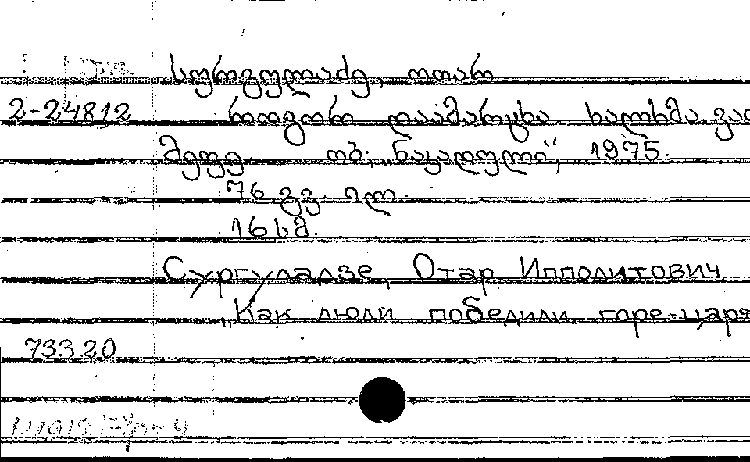 სურგულაძე, ოთარ
2-24812 როგორ დაამარცხა ხალხმა
მეფე თბ; „ნაკადული“, 1975.
76 გვ. ილ.
16 სმ.
Сургуладзе, Отар Ипполитович
„Как люди победили горе-царя
733.20